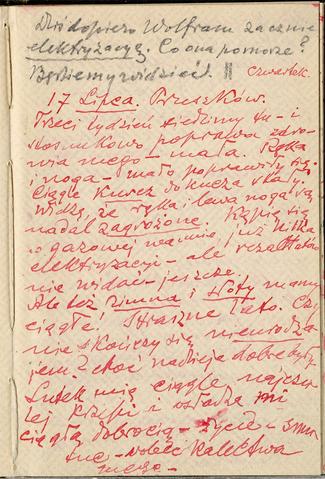 Dziś dopiero Wolfram zacznie
elektryzację. Co ona pomoże?
Będziemy widzieli. || Czwartek.
17 Lipca. Pruszków.
Trzeci tydzień siedzimy tu - i
stosunkowo poprawa zdro-
wia mego - mała. Ręka
i noga - mało poprawiły się
Ciągle kurcz dokucza skały.
Widzę, że ręka i lewa noga są
nadal zagrożone. Kąpię się
w gazowej wannie, już kilka
elektryzacji - ale rezultatów
nie widać - jeszcze.
Ale też zimna i słoty mamy
ciągłe! Straszne lato. Czy
nie skończy się nieurodza-
jem? choć nadzieje dobre były.
Lutek mię ciągle najczu-
lej krzepi i osładza mi
ciągłą dobrocią - życie - smu
tne - wobec kalectwa
mego -